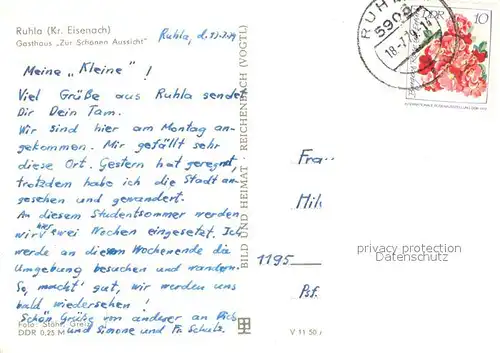 Ruhla (Kr. Eisenach)
Gasthaus "Zur Schönen Aussicht"
Ruhla, d.
Meine "Kleine"!
Viel Grüße aus Ruhla sendet
Dir Dein Tam.
Wir sind hier am Montag an-
gekommen. Mir gefällt sehr
diese Ort. Gestern hat geregnet,
trotzdem habe ich die Stadt an-
gesehen und gewandert.
An diesem Studentsommer werden
wir hier zwei Wochen eingesetzt. Ich
werde an diesem Wochenende die
Umgebung besuchen und wandern.
So, macht' gut, wir werden uns
bald wiedersehen!
Schön Grüße von anderer an Dich
und Simone und Fr. Schulz.
Foto: Stöhr, Greiz
DDR 0,25 M
BILD UND HEIMAT · REICHENBACH (VOGTL)
V 11 50
RUHLA
5909
18-7.79-14
DDR 10
Frau
1195
Psf.
privacy protection
Datenschutz